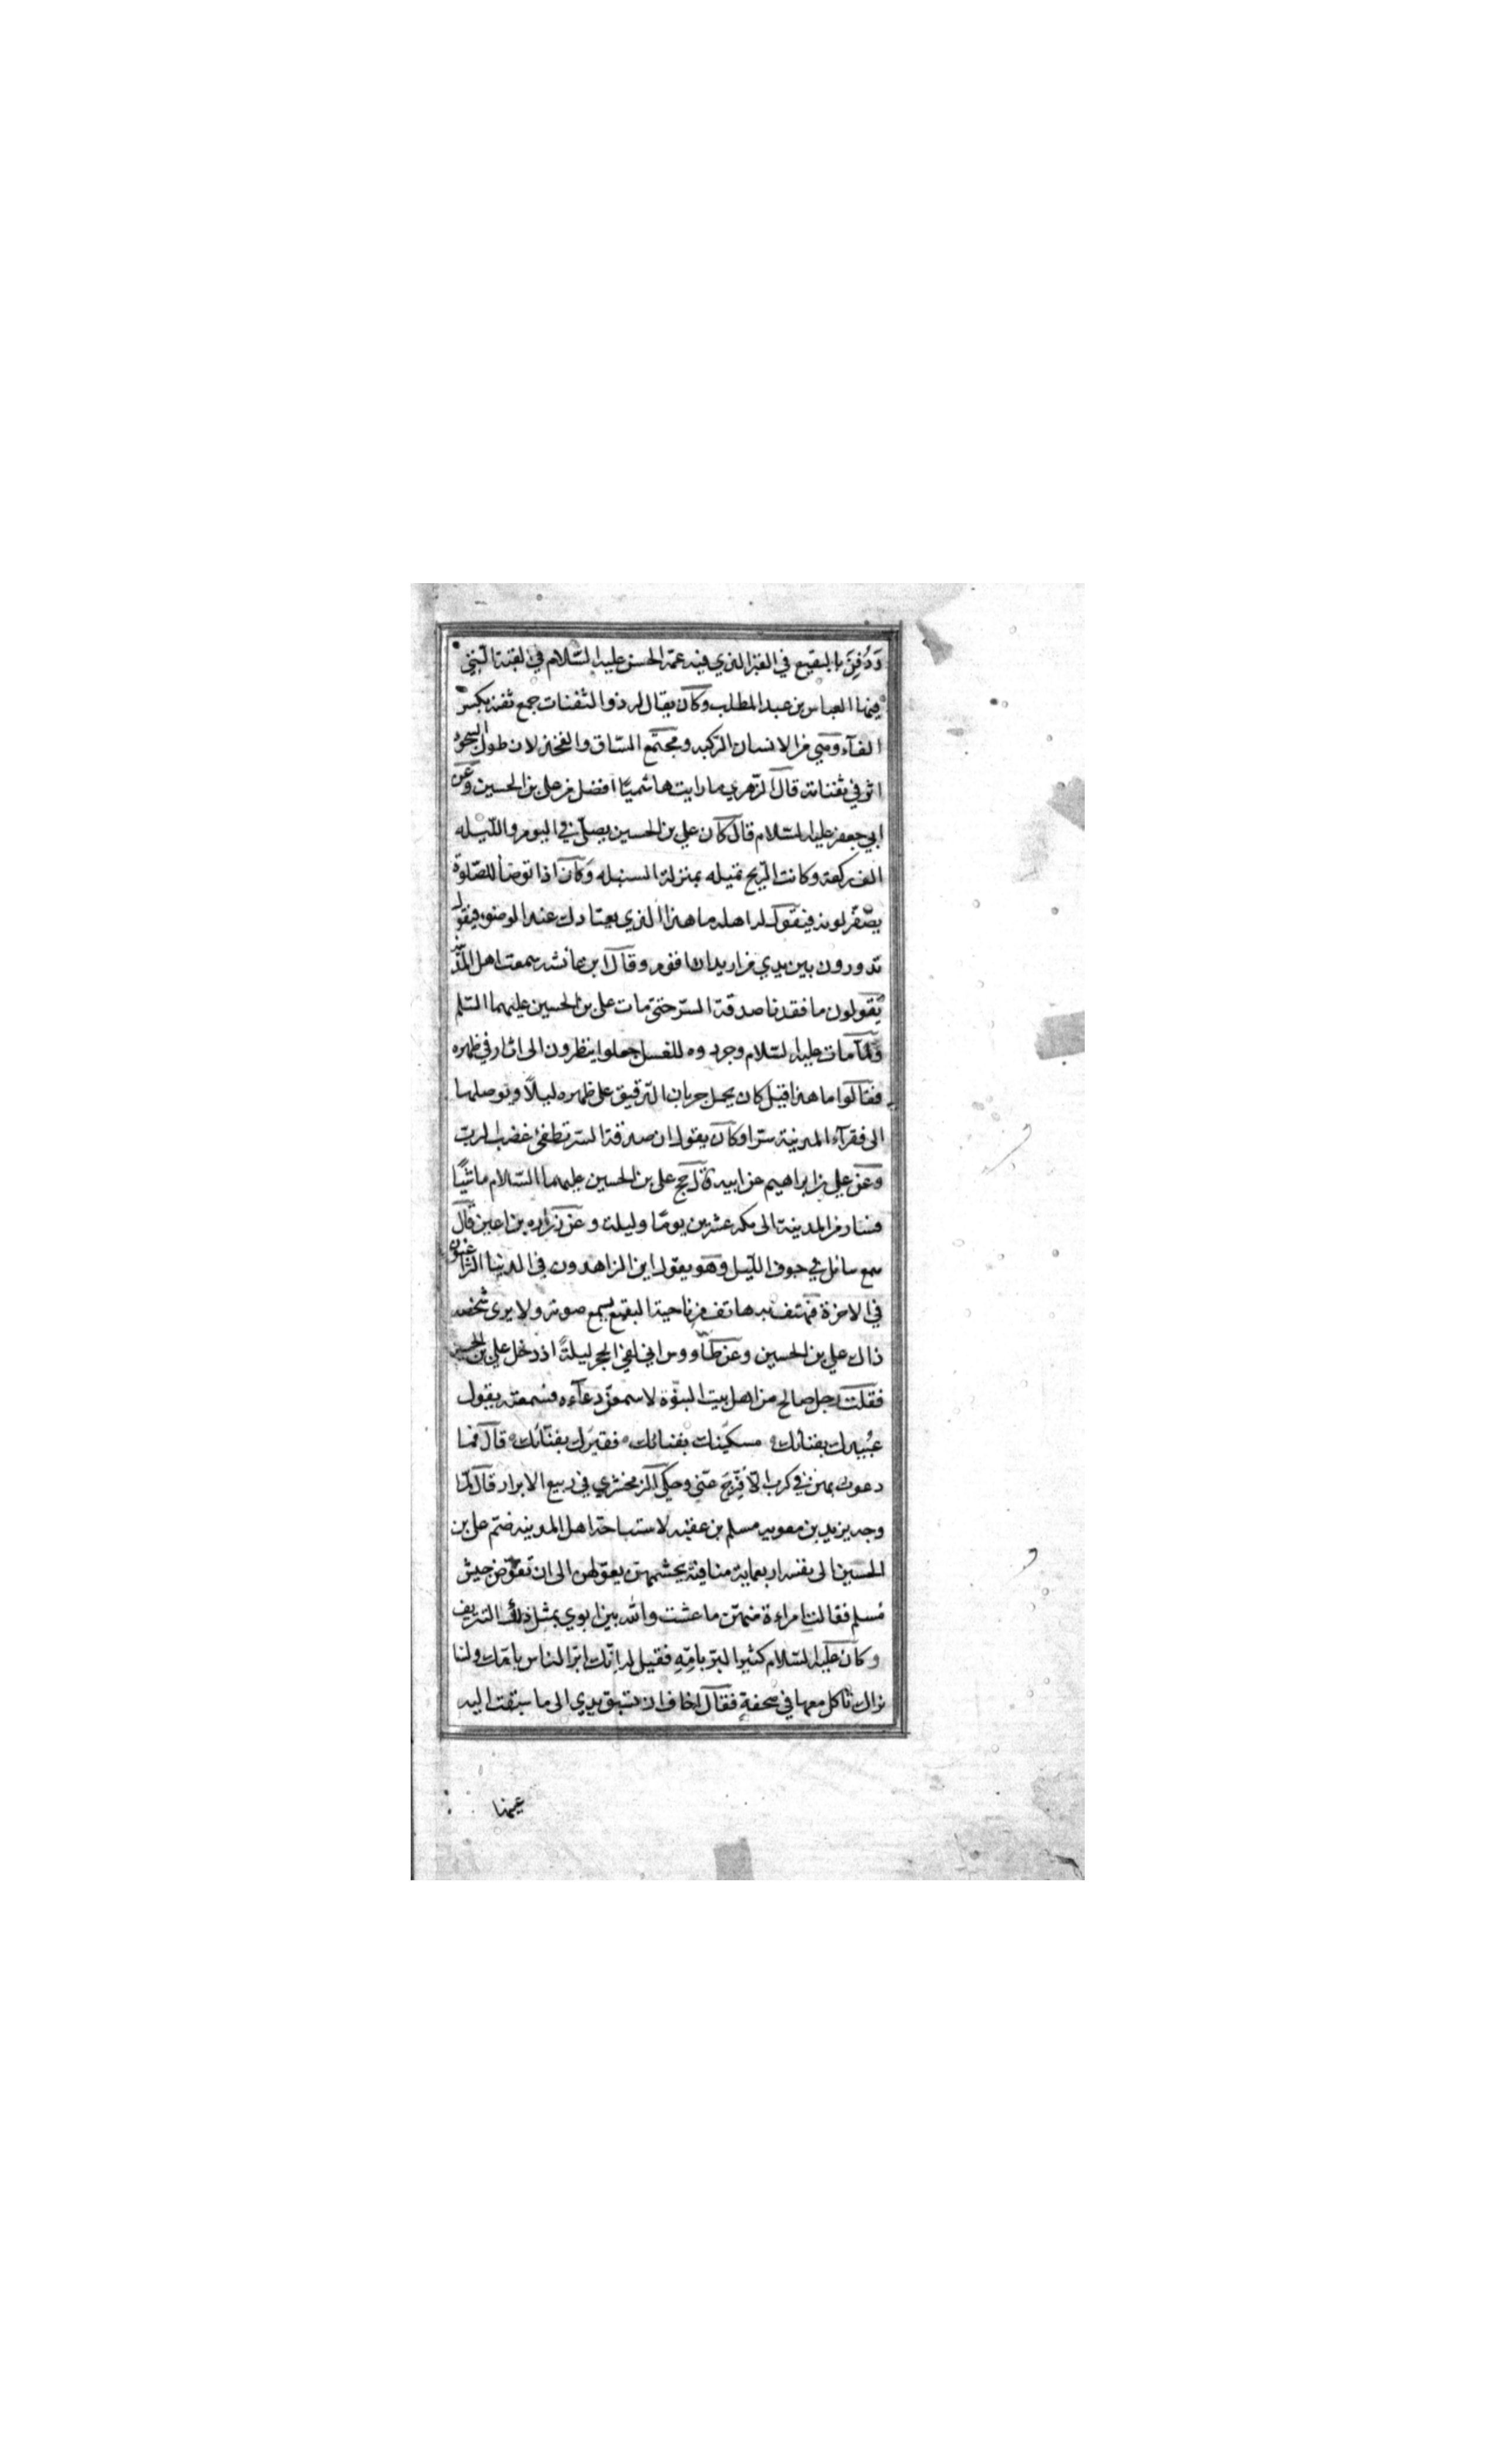 ودُفِنَ بالبقيع في القبر الذي فيه عمه الحسن عليه السّلام في القبة الّتي
فيها العباس بن عبد المطلب وكان يقال له ذو الثفنات جمع ثفنه بكسر
الفآء وهي من الانسان الركبه ومجتمع السّاق والفخذ لان طول السجود
اثر في ثفناته قال الزّهري ما رايت هاشميّا افضل من علي بن الحسين وعن
ابي جعفر عليه السّلام قال كان علي بن الحسين يصلّي في اليوم واللّيله
الف ركعة وكانت الرّيح تميله بمنزلة السنبله وكان اذا توضأ للصّلوة
يصفّر لونه فيقول له اهله ما هذا الذي يعتادك عند الوضوء فيقول
تدورون بين يدي من اريد ان اقوم وقال ابن عائشه سمعت اهل المدينة
يقولون ما فقدنا صدقة السّر حتى مات علي بن الحسين عليهما السّلم
ولمّا مات عليه السّلام وجردوه للغسل جعلوا ينظرون الى اثار في ظهره
فقالوا ما هذا قيل كان يحمل جربان الدّقيق على ظهره ليلاً ويوصلها
الى فقرآء المدينة سرّا وكان يقول ان صدقة السّر تطفئ غضب الرب
وعن علي بن ابراهيم عن ابيه قال حج علي بن الحسين عليهما السّلام ماشيًا
فسار من المدينة الى مكه عشرين يومًا وليلة وعن زراره بن اعين قال
سمع سائل في جوف اللّيل وهو يقول اين الزاهدون في الدنيا الرّاغبون
في الاخرة فهتف به هاتف من ناحية البقيع يسمع صوته ولا يرى شخصه
ذاك علي بن الحسين وعن طاووس اني لفي الحجر ليلةً اذ دخل علي بن الحسين
فقلت رجل صالح من اهل بيت النبوّة لاسمعنّ دعآءه فسمعته يقول
عُبيدك بفنائك مسكينك بفنائك فقيرك بفنائك قال فما
دعوت بهن في كرب الّا فُرّج عنّي وحكى الزمخشري في ربيع الابرار قال لمّا
وجه يزيد بن معويه مسلم بن عقبه لاستباحة اهل المدينه ضم علي بن
الحسين الى نفسه اربعماية منافية بحشمهنّ يعولهن الى ان تقوّض جيش
مُسلم فقالت امراءة منهنّ ما عشت والله بين ابوي بمثل ذلك التريف
وكان عليه السّلام كثير البرّ بامّه فقيل له انّك ابرّ الناس بامّك ولسنا
نراك تاكل معها في صحفة فقال اخاف ان تسبق يدي الى ما سبقت اليه
عينها